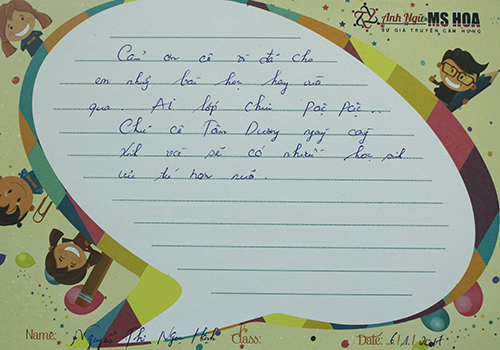 Anh Ngữ MS HOA
SỨ GIẢ TRUYỀN CẢM HỨNG
Cảm ơn cô vì đã cho
em những bài học hay vừa
qua. Ai lớp chúi
Chúc cô Tân Dương ngày càng
xinh và sẽ có nhiều học sinh
ưu tú hơn nữa.
Name: Nguyễn Thị Ngọc Class: Date: 6/1/